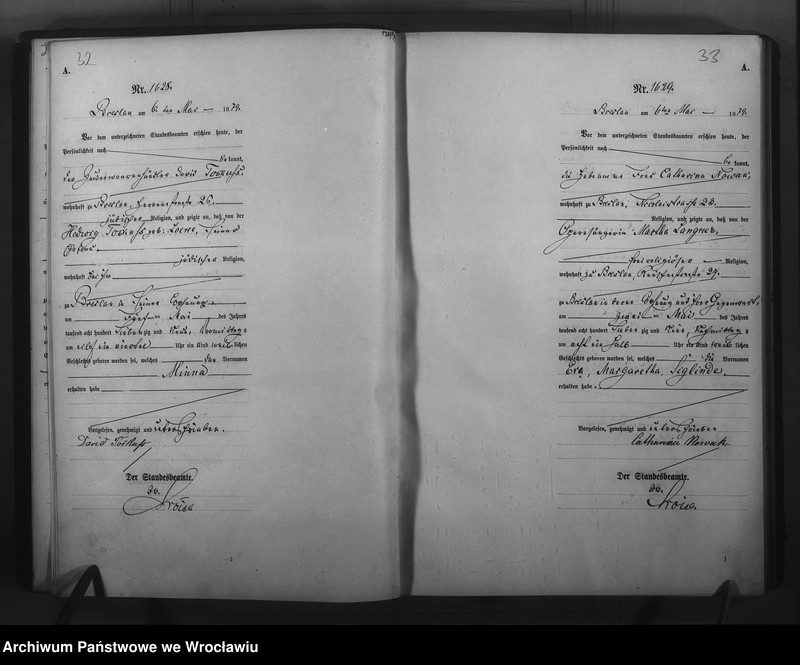 32
A.
Nr. 1628.
Breslau am 6ten Mai 1879.
Vor dem unterzeichneten Standesbeamten erschien heute, der
Persönlichkeit nach
be kannt,
der David
wohnhaft zu Breslau, 26.
jüdischer Religion, und zeigte an, daß von der
Hedwig geb: Loewe, seiner
Ehefrau,
jüdischer Religion,
wohnhaft bei ihm
zu Breslau in seiner Wohnung
am fünften Mai des Jahres
tausend acht hundert siebenzig und neun, Vormittags
um elf ein viertel Uhr ein Kind weiblichen
Geschlechts geboren worden sei, welches den Vornamen
Minna
erhalten habe
Vorgelesen, genehmigt und unterschrieben.
David
Der Standesbeamte.
33
A.
Nr. 1629.
Breslau am 6ten Mai 1879.
Vor dem unterzeichneten Standesbeamten erschien heute, der
Persönlichkeit nach
be kannt,
die Hebamme Frau Catharina Nowak,
wohnhaft zu Breslau, Nicolaistrasse 28.
Religion, und zeigte an, daß von der
Opernsängerin Martha
freireligiöser Religion,
wohnhaft zu Breslau, Reuschestraße 27.
zu Breslau in deren Wohnung und ihrer Gegenwart,
am zwei Mai des Jahres
tausend acht hundert siebenzig und neun, Nachmittags
um acht ein halb Uhr ein Kind weiblichen
Geschlechts geboren worden sei, welches die Vornamen
Eva, Margaretha, Siglinde
erhalten habe.
Vorgelesen, genehmigt und unterschrieben
Catharina Nowack.
Der Standesbeamte.
1
1
Archiwum Państwowe we Wrocławiu